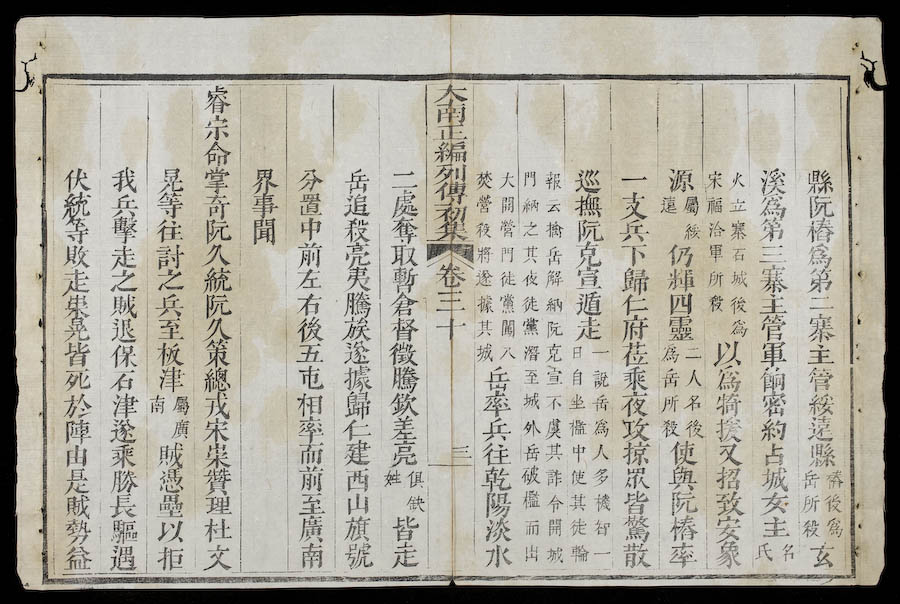 縣阮樁爲第二寨主管綏遠縣樁後爲岳所殺玄
溪爲第三寨主管軍餉密約占城女主名氏
火立寨石城後爲宋福洽軍所殺以爲犄援又招致安象
源屬綏遠仍輝四靈二人名後爲岳所殺使與阮樁率
一支兵下歸仁府莅乘夜攻掠眾皆驚散
巡撫阮克宣遁走一說岳爲人多機智一日自坐檻中使其徒輪
報云擒岳解納阮克宣不虞其詐令開城門納之其夜徒黨潛至城外岳破檻而出
大開營門徒黨闖入焚營後將遂據其城岳率兵往乾陽淡水
大南正編列傳初集 卷三十 三
二處奪取暫倉督徵騰欽差亮俱缺姓皆走
岳追殺亮夷騰族遂據歸仁建西山旗號
分置中前左右後五屯相率而前至廣南
界事聞
睿宗命掌奇阮久統阮久策總戎宋崇贊理杜文
晃等往討之兵至板津屬廣南賊憑壘以拒
我兵擊走之賊退保石津遂乘勝長驅遇
伏統等敗走崇晃皆死於陣由是賊勢益